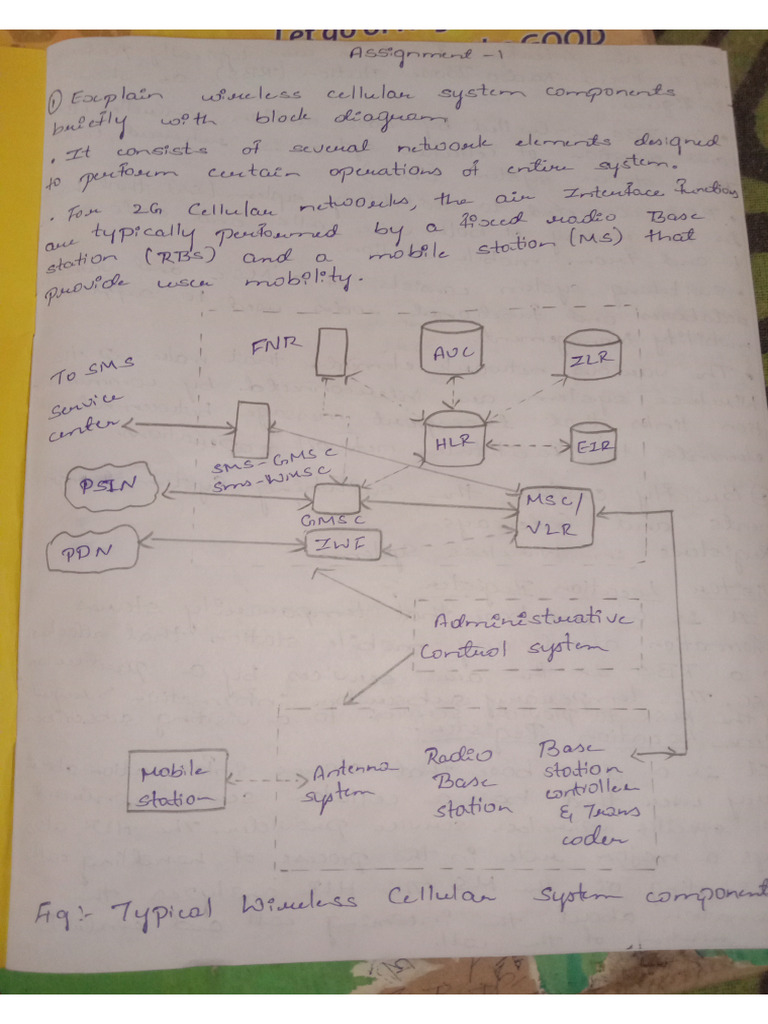 GOOD
Assignment -1
① Explain wireless cellular system components
briefly with block diagram
. It consists of several network elements designed
to perform certain operations of entire system.
. For 2G Cellular networks, the air Interface functions
are typically performed by a fixed radio Base
station (RBS) and a mobile station (MS) that
provide user mobility.
FNR
AUC
ILR
To SMS
service
center
HLR
EIR
SMS-GMSC
SMS-IWMSC
PSTN
GMSC
MSC/
VLR
PDN
IWF
Administrative
control system
Mobile
station
Antenna
system
Radio
Base
station
Base
station
controller
& Trans
coder
Fig:- Typical Wireless Cellular System component